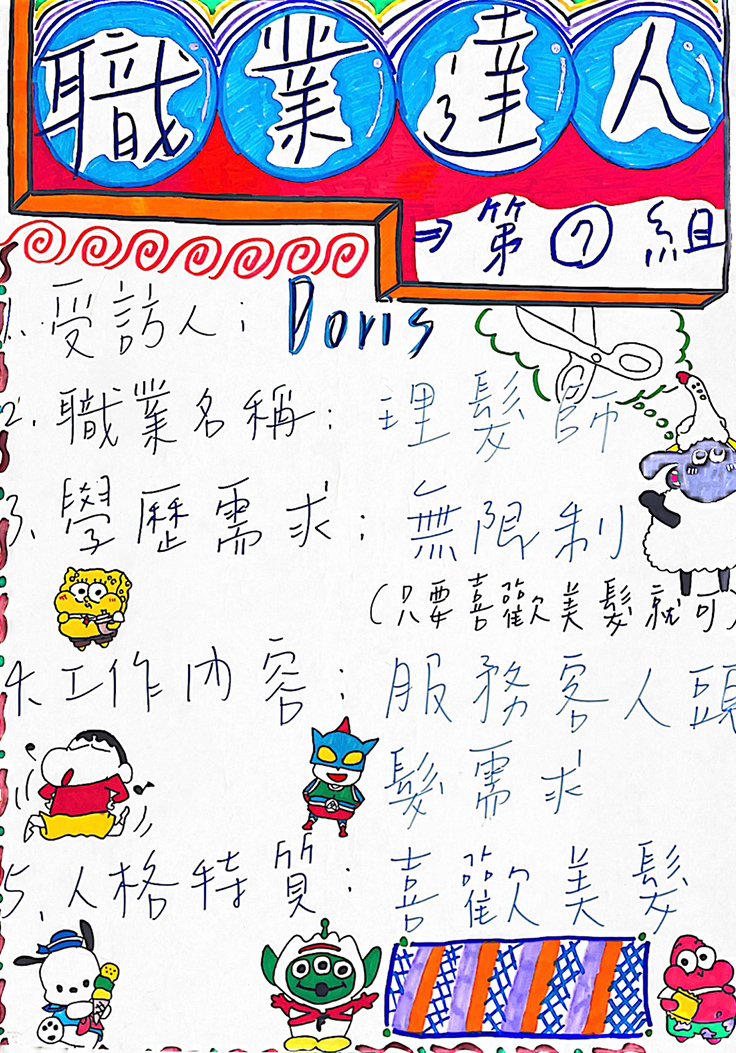 職業達人
⇒第⑦組
1. 受訪人：Doris
2. 職業名稱：理髮師
3. 學歷需求：無限制
(只要喜歡美髮就可)
4. 工作內容：服務客人頭
髮需求
5. 人格特質：喜歡美髮